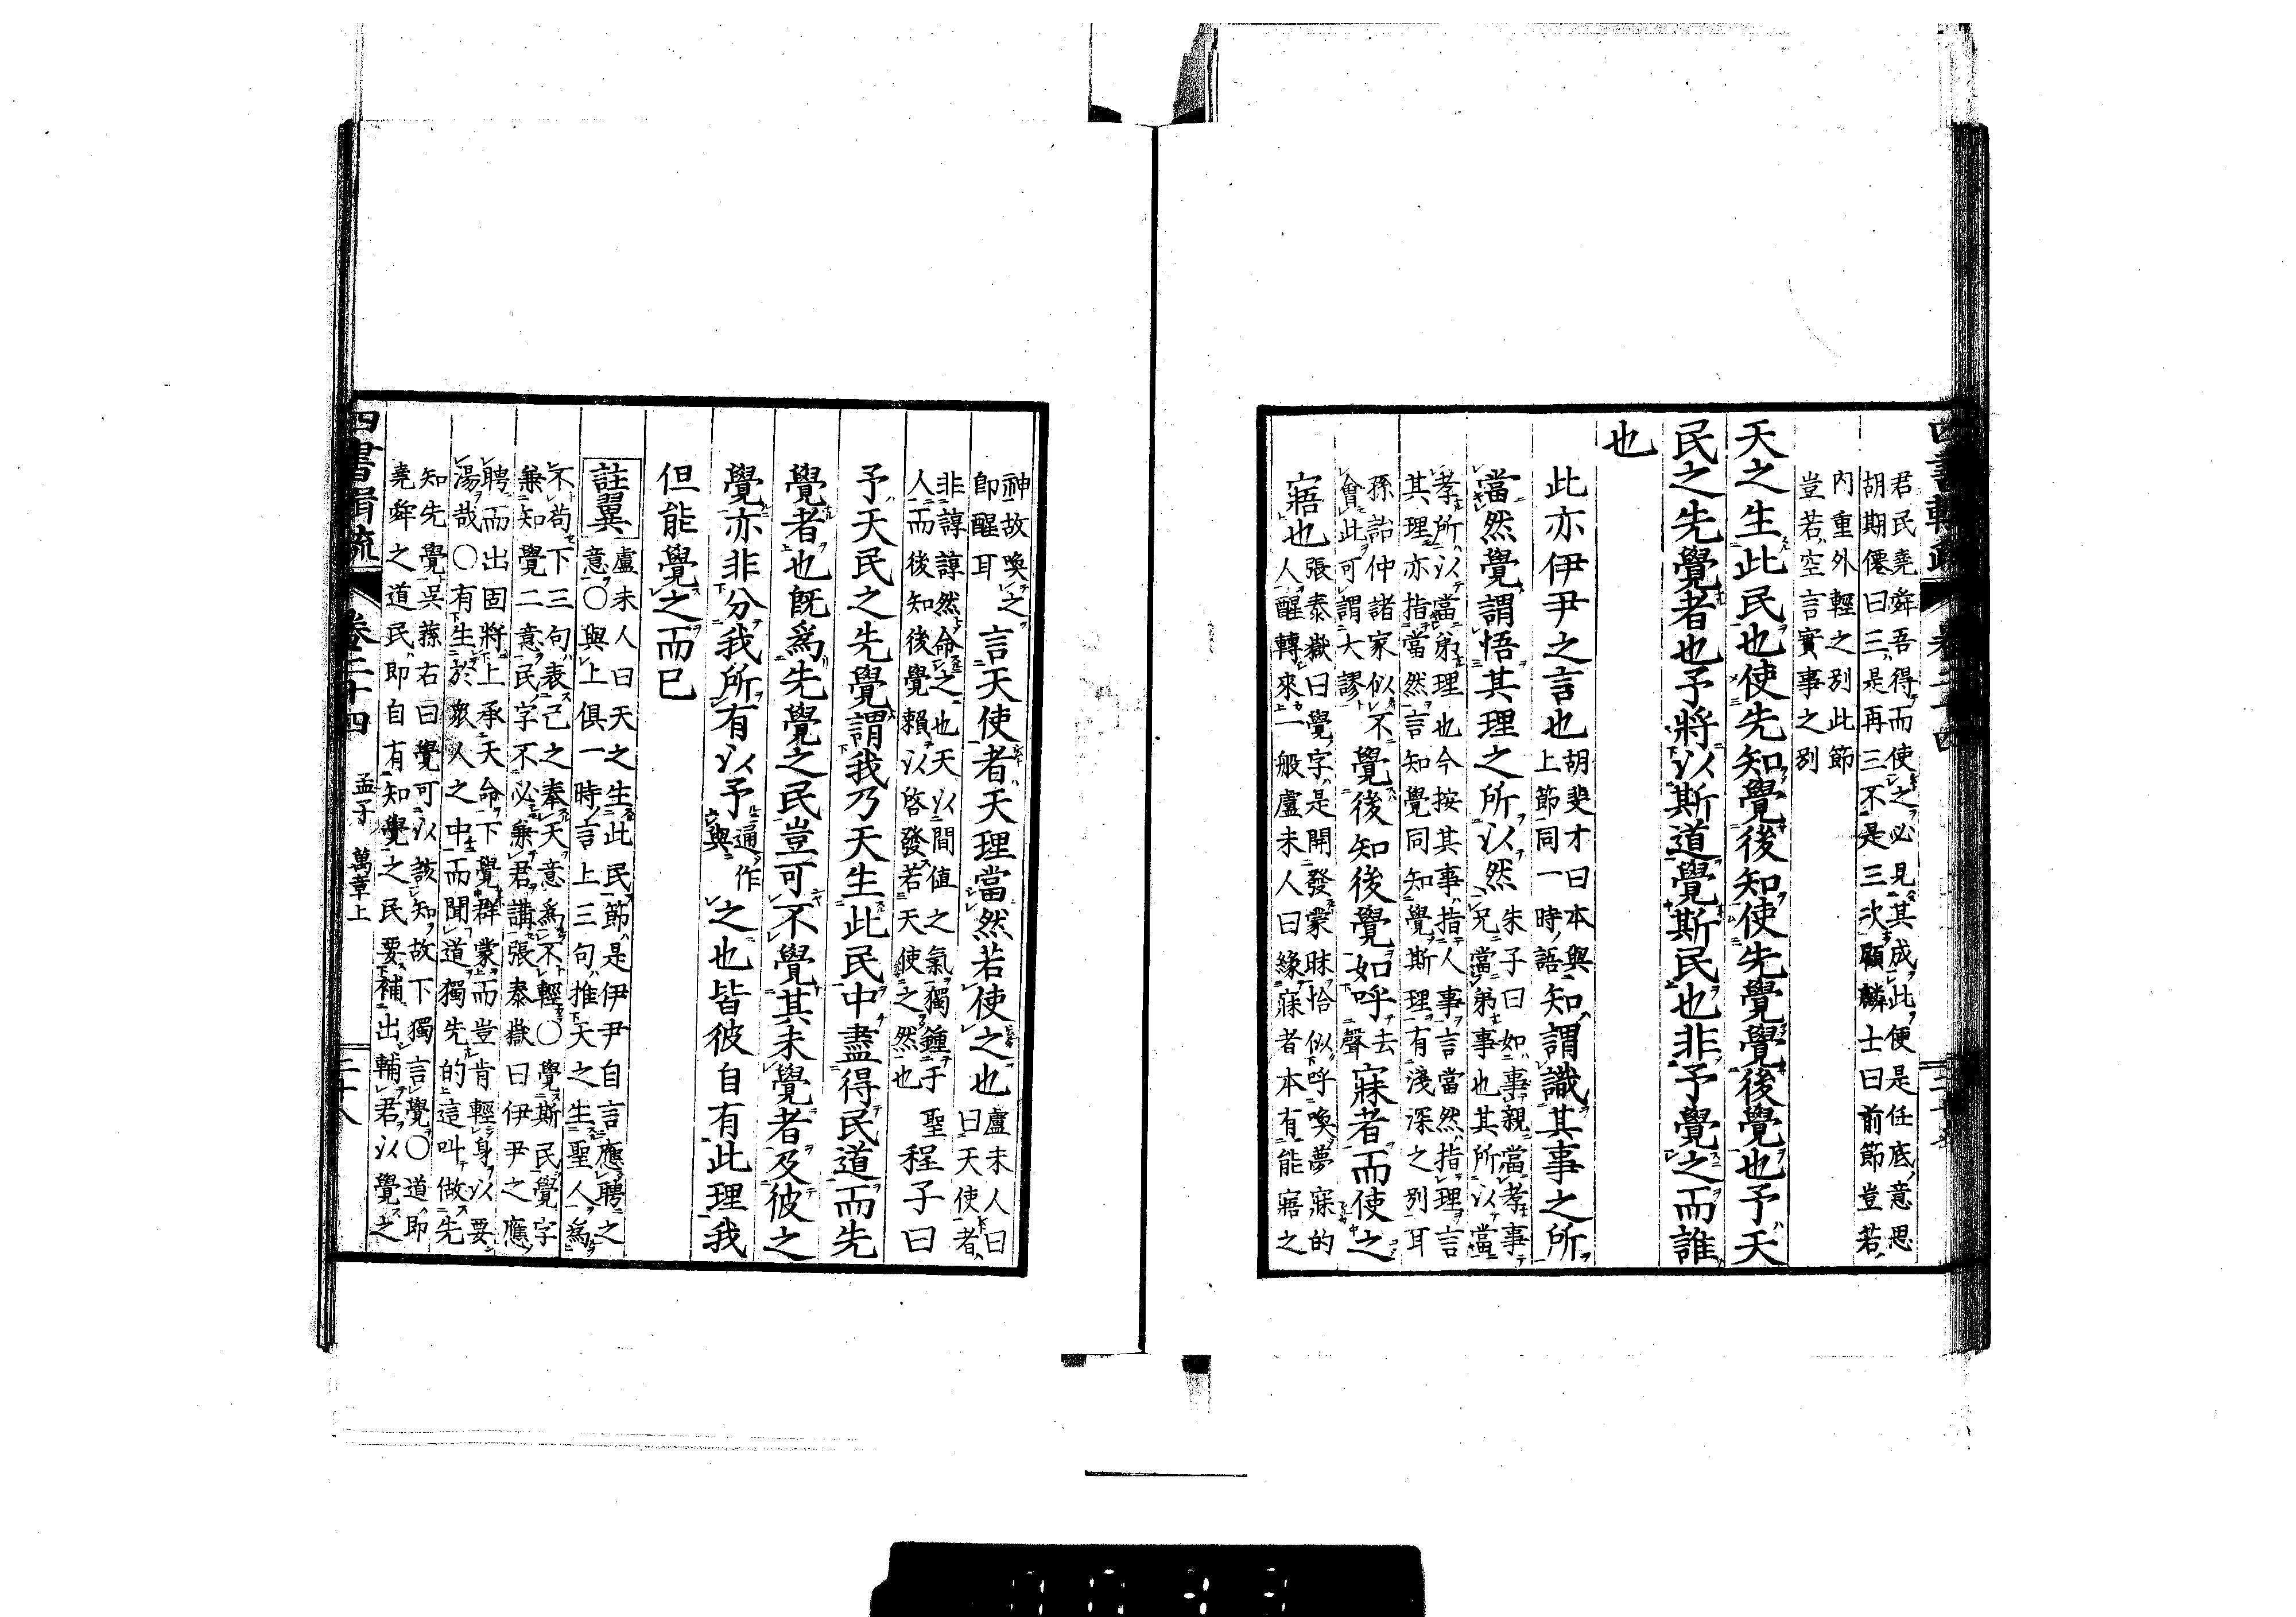 君民堯舜吾得而使之必見其成此便是任底意思
胡期僊曰三是再三不是三次顧麟士曰前節豈若
内重外輕之別此節
豈若空言實事之別
天之生此民也使先知覺後知使先覺覺後覺也予天
民之先覺者也予將以斯道覺斯民也非予覺之而誰
也
此亦伊尹之言也
胡斐才曰本與
上節同一時語
知謂識其事之所
當然覺謂悟其理之所以然
朱子曰如事親當孝事
兄當弟事也其所以當
孝所以當弟理也今按其事指人事言當然指理言
其理亦指當然言知覺同知覺斯理有淺深之別耳
孫詒仲諸家似不
會此可謂大謬
覺後知後覺如呼
去
聲
寐者而使之
寤也
張泰嶽曰覺字是開發蒙昧恰似呼喚夢寐的
人醒轉來一般盧未人曰緣寐者本有能寤之
神故喚之
卽醒耳
言天使者天理當然若使之也
盧未人曰
曰天使者
非諄諄然命之也天以間値之氣獨鍾于聖
人而後知後覺賴以啓發若天使之然也
程子曰
予天民之先覺謂我乃天生此民中盡得民道而先
覺者也旣爲先覺之民豈可不覺其未覺者及彼之
覺亦非分我所有以予
逼作
與
之也皆彼自有此理我
但能覺之而已
註翼
盧未人曰天之生此民節是伊尹自言應聘之
意○與上俱一時言上三句推天之生聖人爲
不苟下三句表己之奉天意爲不輕○覺斯民覺字
兼知覺二意民字不必兼君講張泰嶽曰伊尹之應
聘而出固將上承天命下覺群蒙而豈肯輕身以要
湯哉○有生於衆人之中而聞道獨先的這叫做先
知先覺吳蓀右曰覺可以該知故下獨言覺○道即
堯舜之道民即自有知覺之民要補出輔君以覺之
四書輯疏
卷二十四
孟子 萬章上
二十八